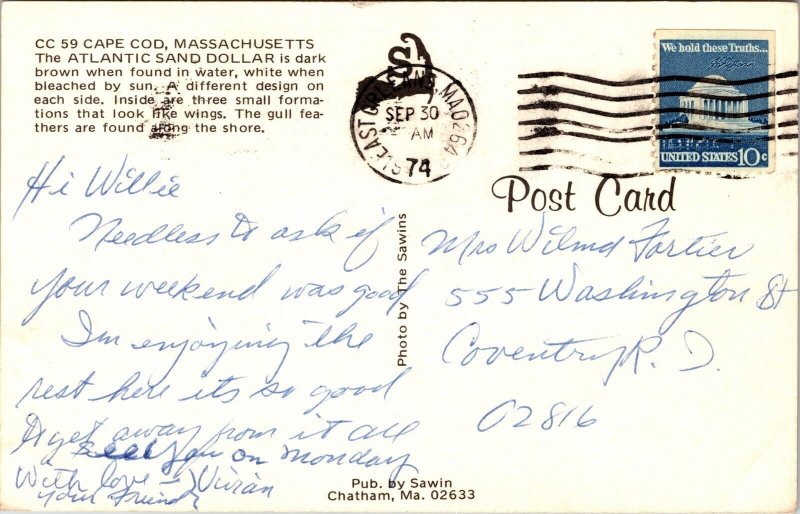 CC 59 CAPE COD, MASSACHUSETTS
The ATLANTIC SAND DOLLAR is dark
brown when found in water, white when
bleached by sun. A different design on
each side. Inside are three small forma-
tions that look like wings. The gull fea-
thers are found along the shore.
EAST ORLEANS, MA 0264
SEP 30
AM
74
We hold these Truths...
UNITED STATES 10c
Post Card
Hi Willie
Needless to ask if
your weekend was good
I'm enjoying the
rest here its so good
to get away from it all
See you on Monday
With love - Vivian
your Friend
Photo by The Sawins
Mrs Wilma Fortier
555 Washington St
Coventry R. I.
02816
Pub. by Sawin
Chatham, Ma. 02633